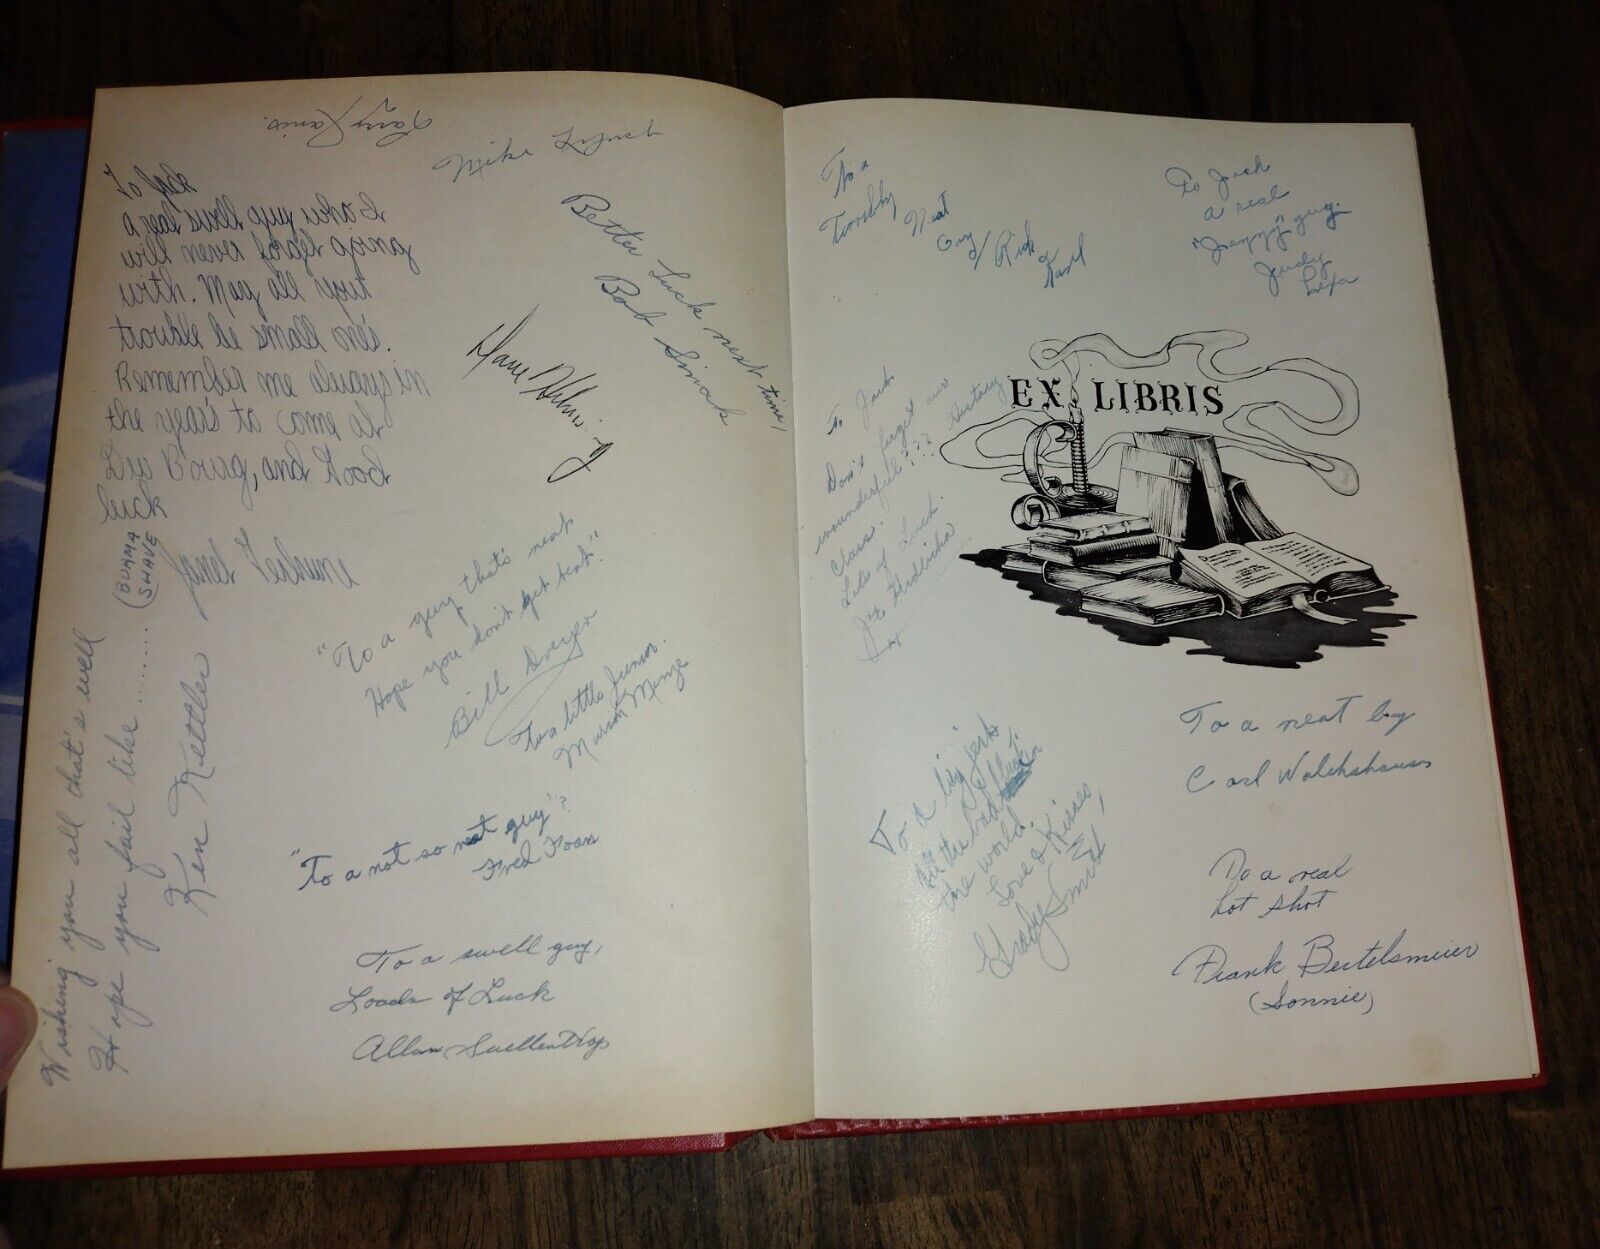 Larry
Mike Lynch
To Jack
a real swell guy who I
will never forget going
with. May all your
trouble be small one's.
Remember me always in
the years to come at
and Good
luck
Better Luck next time!
Bob Smock
Dave
"To a guy that's neat
Hope you don't get beat."
Bill Dreyer
To a little Junior.
Marion Menze
"To a not so neat guy"?
Fred Toan
To a swell guy,
Loads of Luck
Allan Suellentrop
Wishing you all that's well
Hope you fail like........
(BURMA
SHAVE
Ken Kettler
To a
Terribly
Neat
Guy
Rick
To Jack
a real
guy.
Judy
EX LIBRIS
To Jack
Don't forget our
wounderful??? History
Class.
Lots of Luck
Joe
To a big jerk
all the bad
the world.
Love & Kisses
Smith
To a neat boy
Carl
To a real
hot shot
Frank Bertelsmeier
(Sonnie)